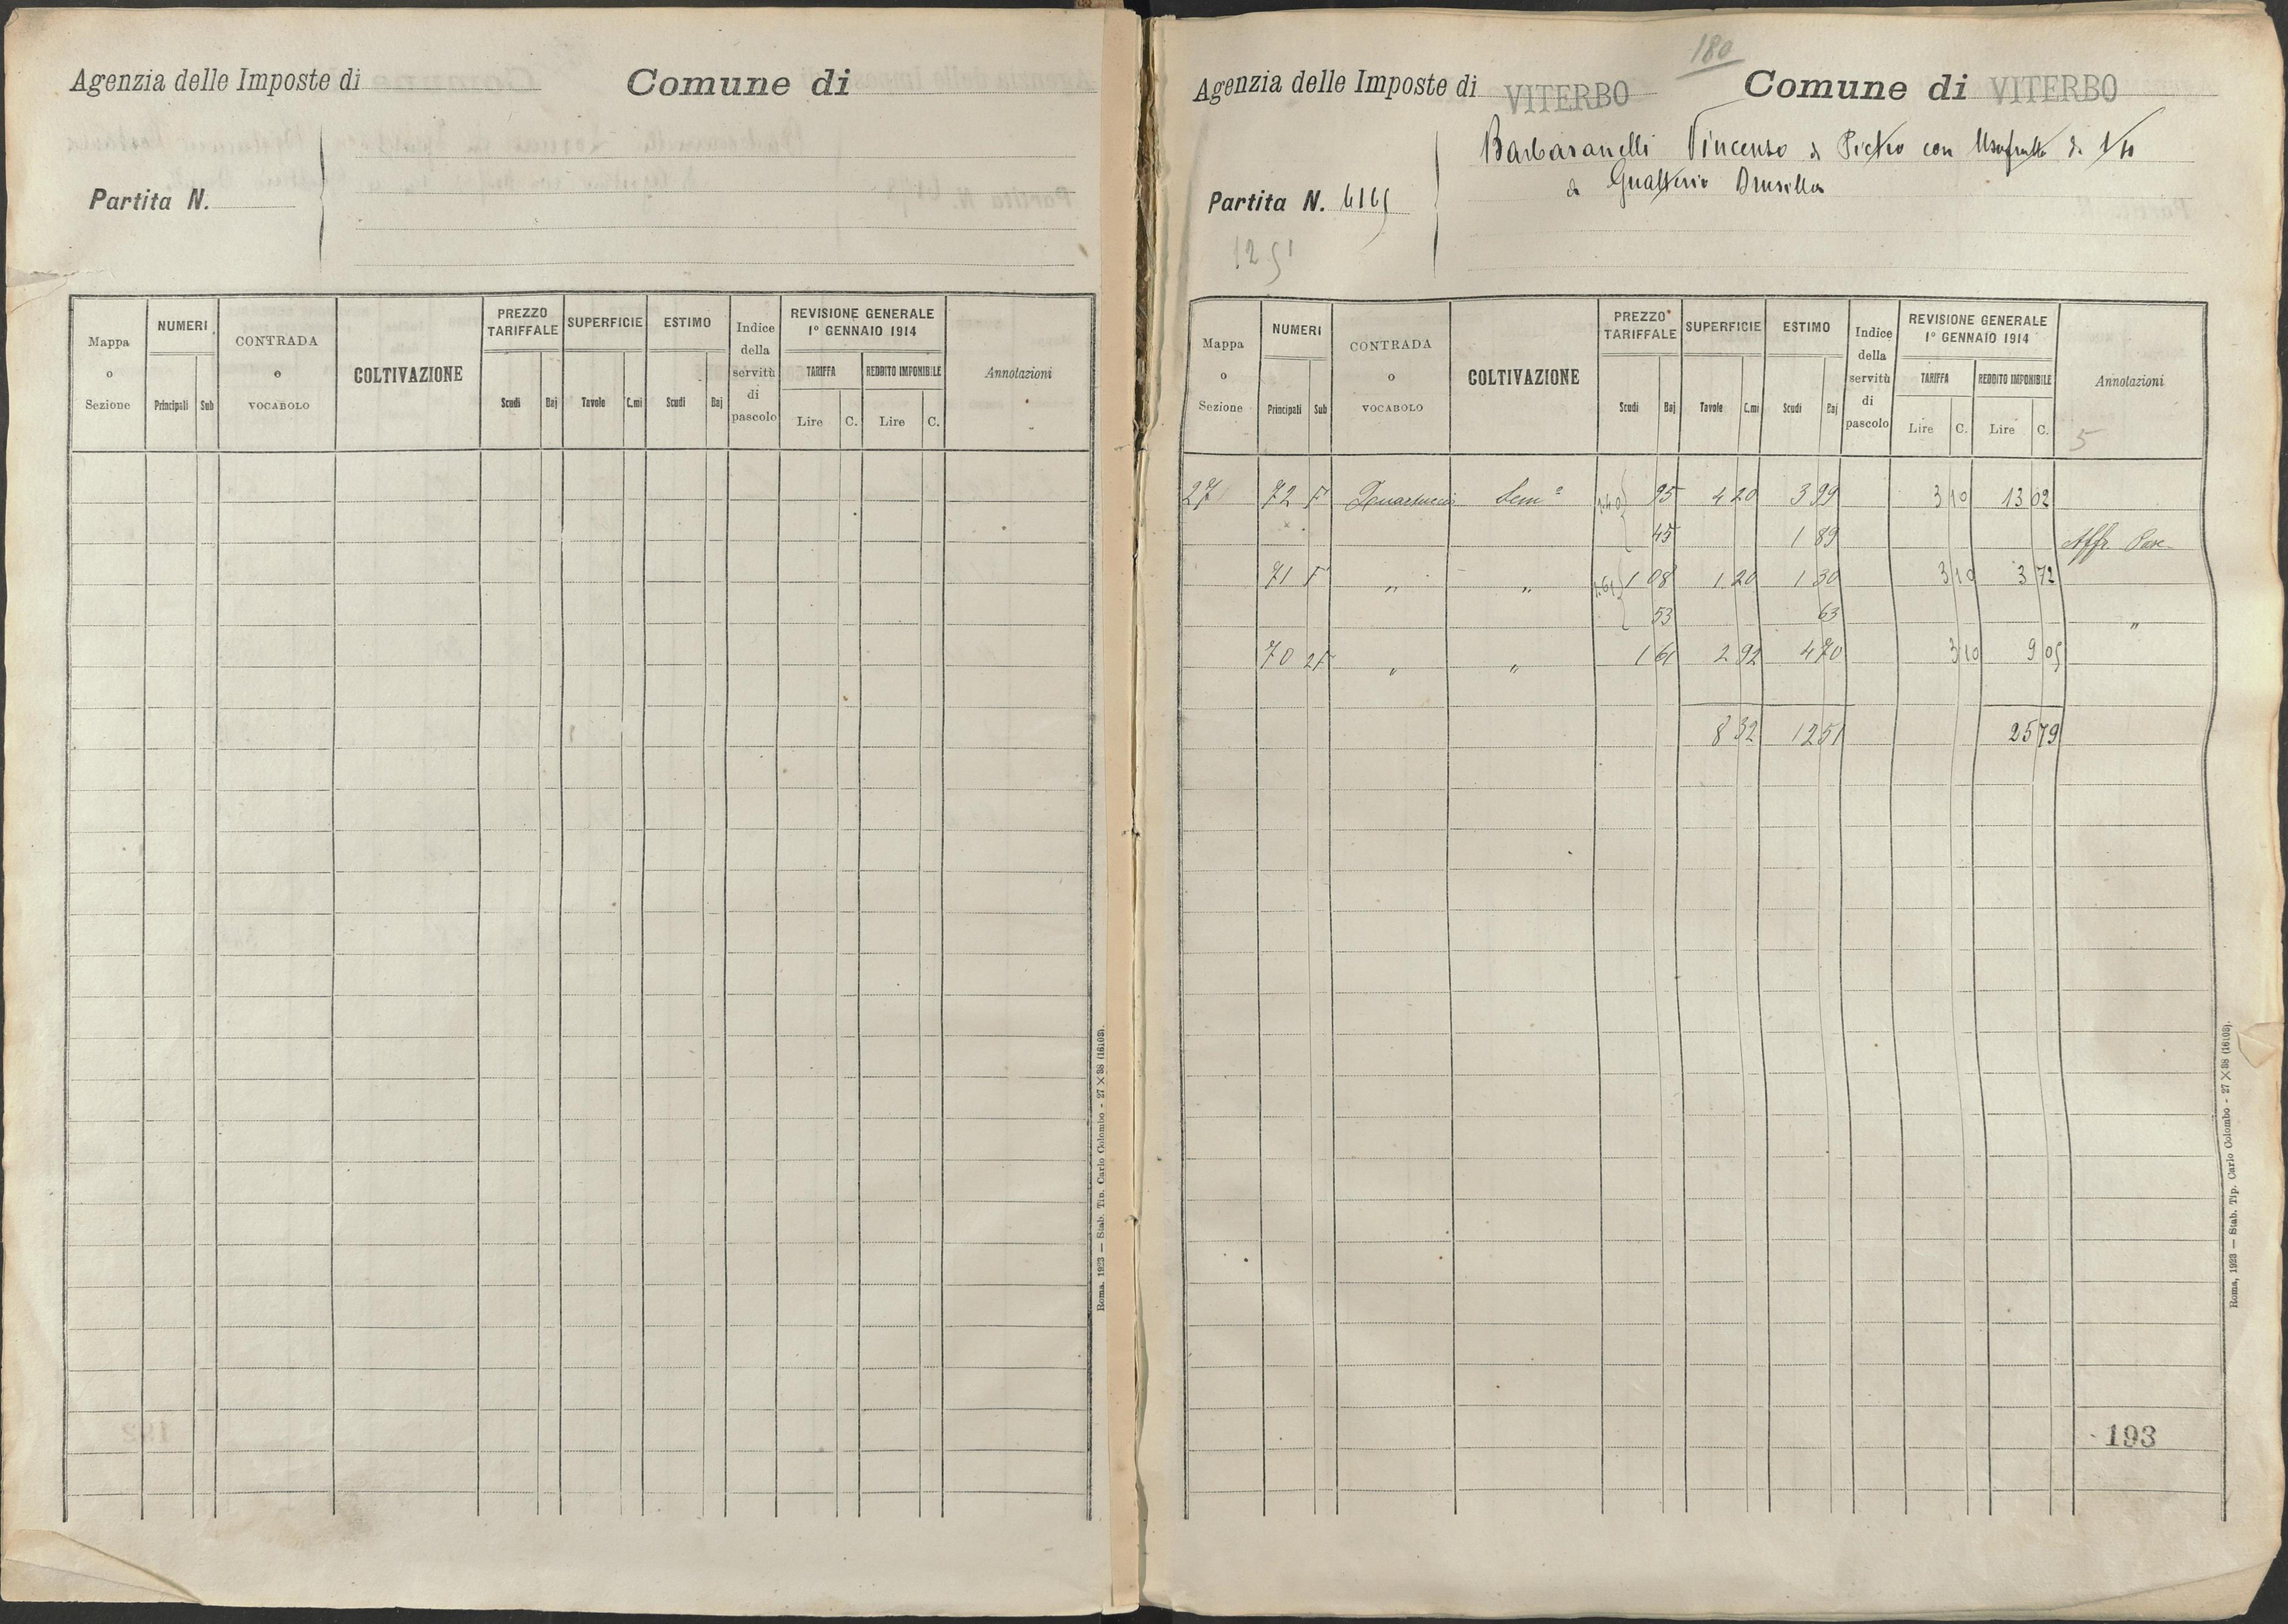 Agenzia delle Imposte di
Comune di
Partita N.
Mappa o Sezione
NUMERI
Principali Sub
CONTRADA o VOCABOLO
COLTIVAZIONE
PREZZO TARIFFALE
Scudi Baj
SUPERFICIE
Tavole C.mi
ESTIMO
Scudi Baj
Indice della servitù di pascolo
REVISIONE GENERALE
1º GENNAIO 1914
TARIFFA
Lire C.
REDDITO IMPONIBILE
Lire C.
Annotazioni
Roma, 1923 — Stab. Tip. Carlo Colombo - 27 X 38 (16103).
180
Agenzia delle Imposte di VITERBO
Comune di VITERBO
Barbaranelli Vincenso di Pietro con Usufrutto di 1/10
a Gualterio Drusilla
Partita N. 4165
1251
Mappa o Sezione
NUMERI
Principali Sub
CONTRADA o VOCABOLO
COLTIVAZIONE
PREZZO TARIFFALE
Scudi Baj
SUPERFICIE
Tavole C.mi
ESTIMO
Scudi Baj
Indice della servitù di pascolo
REVISIONE GENERALE
1º GENNAIO 1914
TARIFFA
Lire C.
REDDITO IMPONIBILE
Lire C.
Annotazioni
5
27 72 F Semº 1.40 95 4 20 3 99 3 10 13 02
45 1 89 Affr. Pasc.
71 F " " 1.61 1 08 1 20 1 30 3 10 3 72
53 63 "
70 2F " " 1 61 2 92 4 70 3 10 9 05
8 32 12 51 25 79
193
Roma, 1923 — Stab. Tip. Carlo Colombo - 27 X 38 (16103).